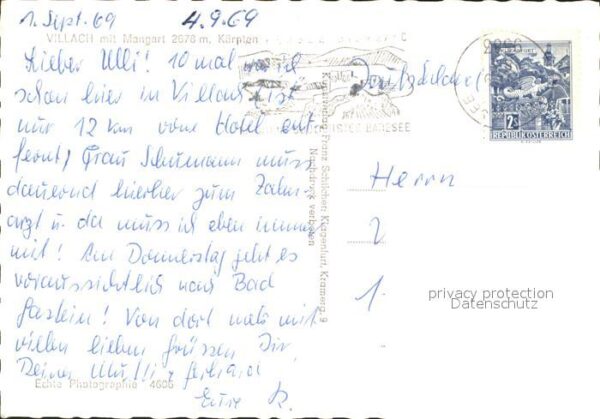 1. Sept. 69 4.9.69
VILLACH mit Mangart 2678 m, Kärnten
Lieber Ulli! 10 mal war ich
schon hier in Villach, ist
nur 12 km vom Hotel ent
fernt, Frau Schumann muss
dauernd hierher zum Zahn-
arzt u. da muss ich eben immer
mit! Am Donnerstag geht es
voraussichtlich nach Bad
Gastein! Von dort mehr mit
vielen lieben Grüssen Dir
Deiner Mutti & Gerhard
Eure R.
Echte Photographie 4606
Kunstverlag Franz Schilcher, Klagenfurt, Kramerg. 9
Nachdruck verboten
2 S
REPUBLIK ÖSTERREICH
Herrn
2
1.
privacy protection
Datenschutz